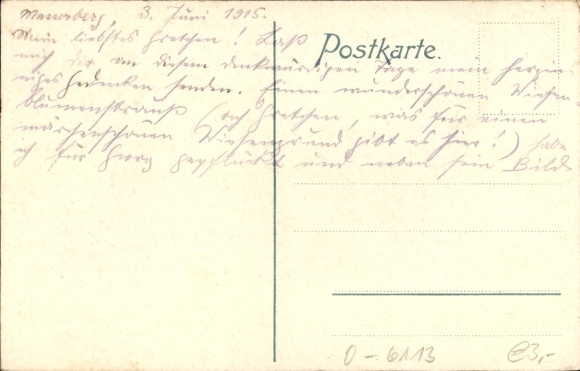 Mauerberg, 3. Juni 1915.
Mein liebstes Gretchen! Laß
Postkarte.
mich dir an diesem denkwürdigen Tage mein herzin-
niges Gedenken senden. Einen wunderschönen Wiesen-
blumenstrauß (ach Gretchen, was für einen
märchenschönen Wiesengrund gibt es hier!) habe
ich für Georg gepflückt und neben sein Bild
0-6113 €3,-